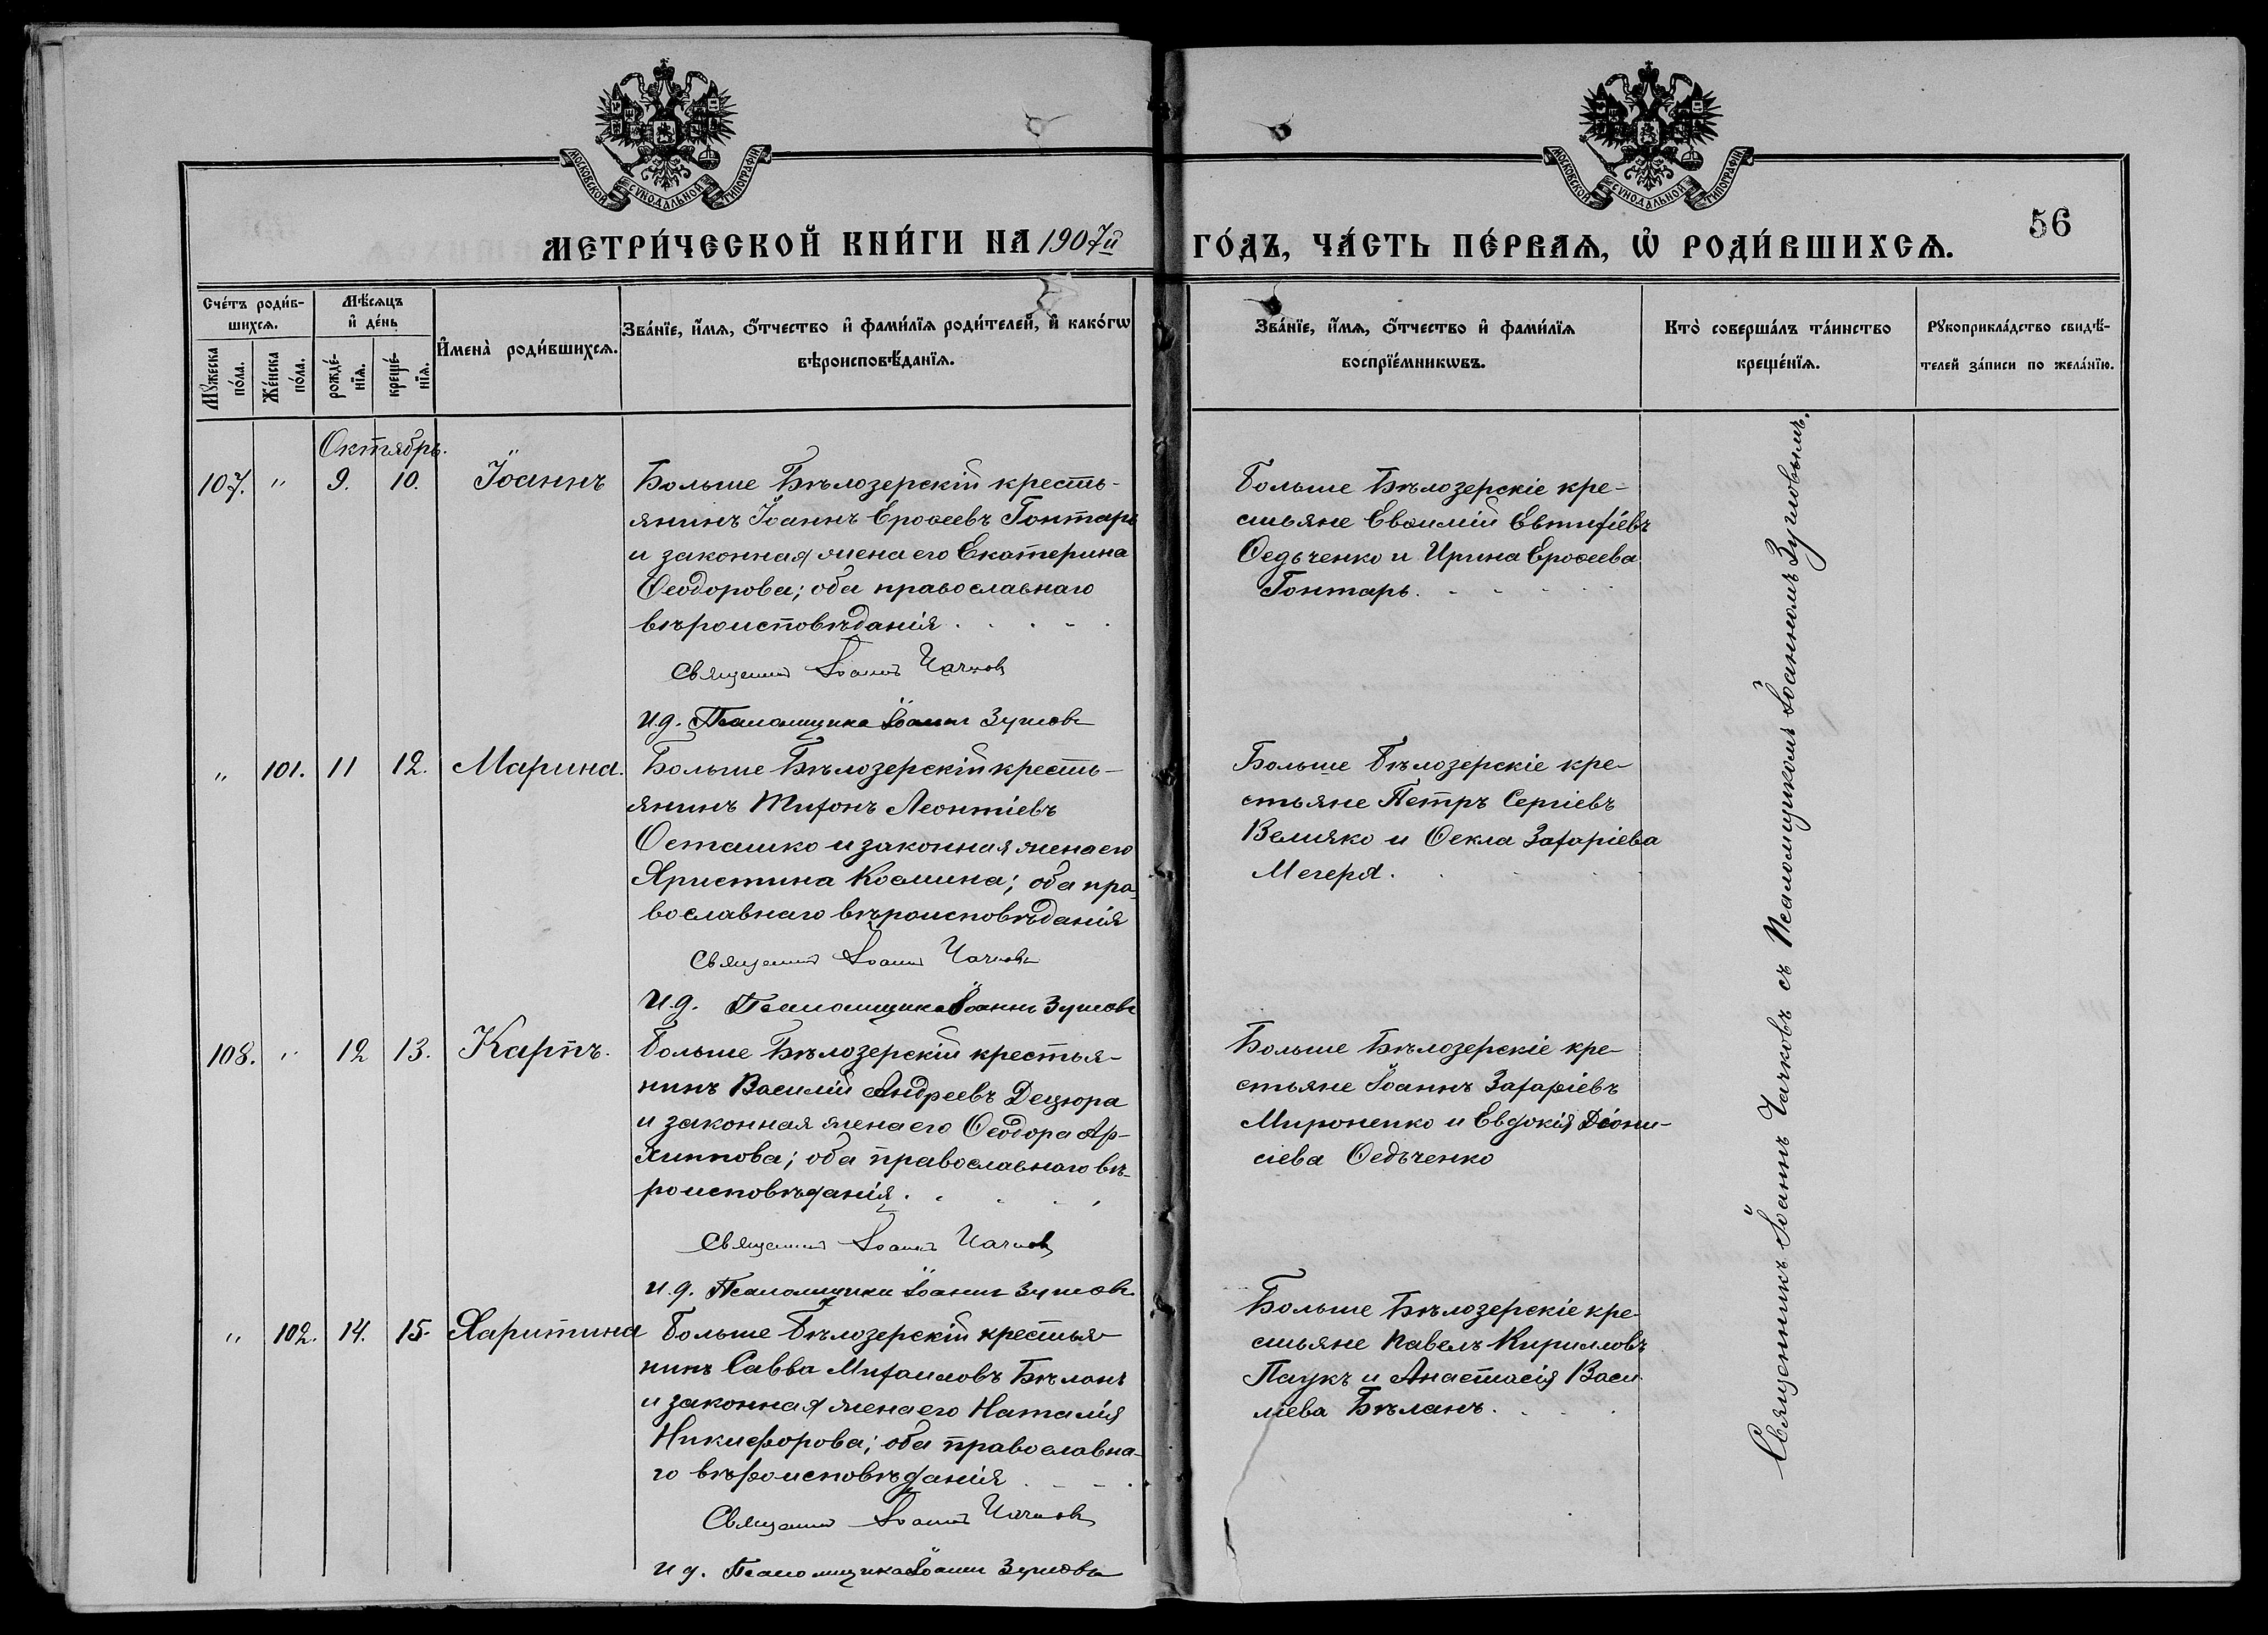 МОСКОВСКОЙ СѴНОДАЛЬНОЙ ТИПОГРАФІИ
МОСКОВСКОЙ СѴНОДАЛЬНОЙ ТИПОГРАФІИ
56
МЕТРИ́ЧЕСКОЙ КНИ́ГИ НА 1907й ГО́ДЪ, ЧА́СТЬ ПЕ́РВАѦ, Ѡ РОДИ́ВШИХСѦ.
Сче́тъ роди́в-
шихсѧ.
Мꙋ́жеска по́ла.
Же́нска по́ла.
Мѣ́сѧцъ
и҆ де́нь
рожде́-
нїѧ.
креще́-
нїѧ.
И҆мена̀ роди́вшихсѧ.
Зва́нїе, и҆́мѧ, ѻ҆́тчество и҆ фами́лїѧ роди́телей, и҆ како́гѡ
вѣроисповѣ́данїѧ.
Зва́нїе, и҆́мѧ, ѻ҆́тчество и҆ фами́лїѧ
воспрїе́мникѡвъ.
Кто̀ соверша́лъ та́инство
креще́нїѧ.
Рꙋкоприкла́дство свидѣ́-
телей за́писи по жела́нїю.
Октябрь.
107. " 9. 10. Іоаннъ
Больше Бѣлозерскій кресть-
янинъ Іоаннъ Ероѳеевъ Гонтарь
и законная жена его Екатерина
Ѳеодорова; оба православнаго
вѣроисповѣданія
Священникъ Іоаннъ Чачковъ
И.д. Псаломщика Іоаннъ Зуловъ
Больше Бѣлозерскіе кре-
стьяне Евѳимій Евтихіевъ
Ѳедьченко и Ирина Ероѳеева
Гонтарь.
" 101. 11 12. Марина.
Больше Бѣлозерскій кресть-
янинъ Тихонъ Леонтіевъ
Осташко и законная жена его
Христина Космина; оба пра-
вославнаго вѣроисповѣданія
Священникъ Іоаннъ Чачковъ
И.д. Псаломщика Іоаннъ Зуловъ
Больше Бѣлозерскіе кре-
стьяне Петръ Сергіевъ
Велияко и Ѳекла Захаріева
Мегеря.
108. " 12 13. Карпъ.
Больше Бѣлозерскій крестья-
нинъ Василій Андреевъ Децюра
и законная жена его Ѳеодора Ар-
хиппова; оба православнаго вѣ-
роисповѣданія.
Священникъ Іоаннъ Чачковъ
И.д. Псаломщика Іоаннъ Зуловъ
Больше Бѣлозерскіе кре-
стьяне Іоаннъ Захаріевъ
Мироненко и Евдокія Діони-
сіева Ѳедьченко
" 102. 14. 15. Харитина
Больше Бѣлозерскій крестья-
нинъ Савва Михаиловъ Бѣланъ
и законная жена его Наталія
Никифорова; оба православна-
го вѣроисповѣданія
Священникъ Іоаннъ Чачковъ
И.д. Псаломщика Іоаннъ Зуловъ
Больше Бѣлозерскіе кре-
стьяне Павелъ Кирилловъ
Паукъ и Анастасія Васи-
ліева Бѣланъ.
Священникъ Іоаннъ Чачковъ съ Псаломщикомъ Іоанномъ Зуловымъ.